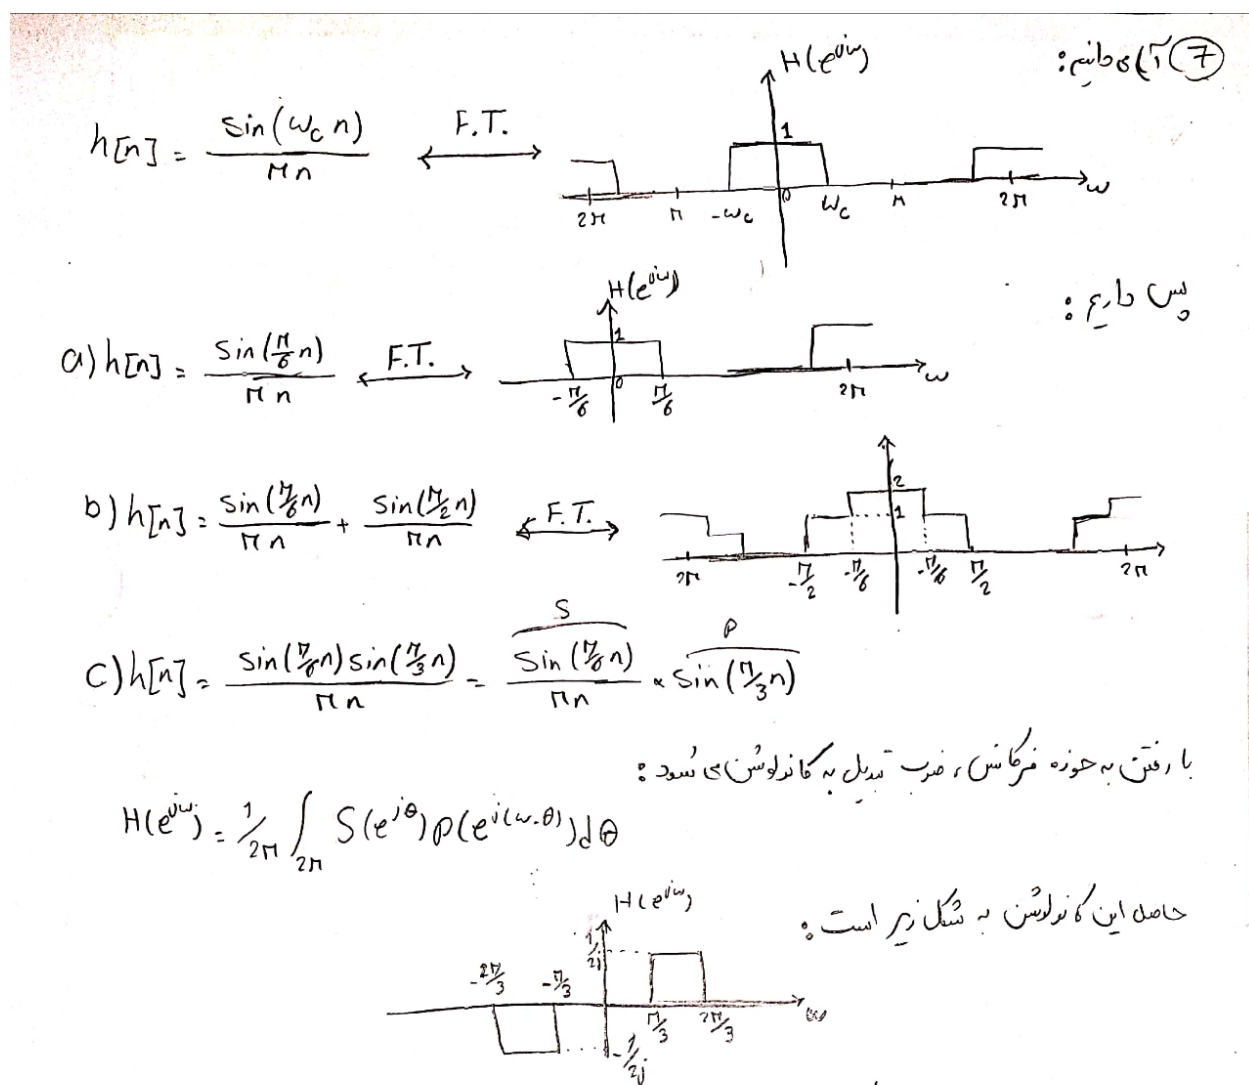 7) آ) می‌دانیم:
h[n] = sin(ω_c n) / πn ⟷ F.T. H(e^{jω}) 1 2π π -ω_c 0 ω_c π 2π ω
پس داریم:
a) h[n] = sin(π/6 n) / πn ⟷ F.T. H(e^{jω}) 1 -π/6 0 π/6 2π ω
b) h[n] = sin(π/6 n) / πn + sin(π/2 n) / πn ⟷ F.T. 2 1 2π -π/2 -π/6 -π/6 π/2 2π
c) h[n] = sin(π/6 n) sin(π/3 n) / πn = S sin(π/6 n) / πn × P sin(π/3 n)
با رفتن به حوزه فرکانس، ضرب تبدیل به کانولوشن می‌شود:
H(e^{jω}) = 1/2π ∫_{2π} S(e^{jθ}) P(e^{j(ω-θ)}) dθ
حاصل این کانولوشن به شکل زیر است:
H(e^{jω}) 1/2j -2π/3 -π/3 π/3 2π/3 ω -1/2j